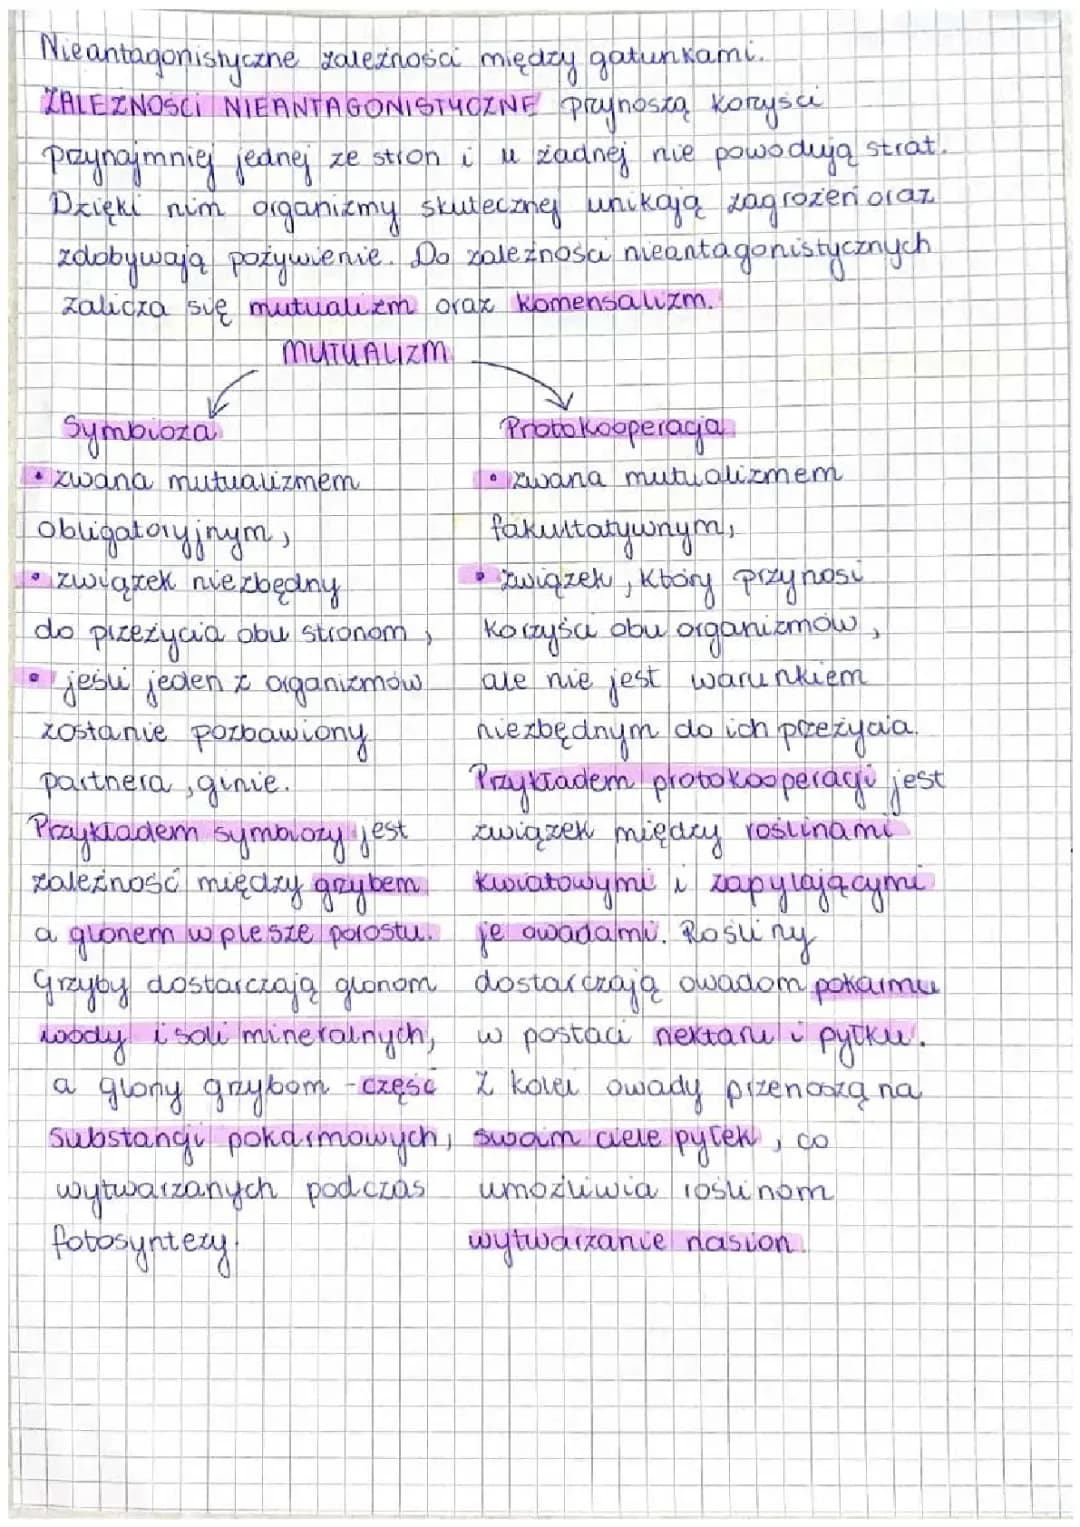 Nieantagonistyczne zależności między gatunkami.
ZALEŻNOŚCI NIEANTAGONISTYCZNE przynoszą korzyści
przynajmniej jednej ze stron i u żadnej nie powodują strat.
Dzięki nim organizmy skutecznej unikają zagrożeń oraz
zdobywają pożywienie. Do zależności nieantagonistycznych
zalicza się mutualizm oraz komensalizm.
MUTUALIZM
Symbioza
• zwana mutualizmem
obligatoryjnym,
• związek niezbędny
do przeżycia obu stronom,
• jeśli jeden z organizmów
zostanie pozbawiony
partnera, ginie.
Przykładem symbiozy jest
zależność między grzybem
a glonem w plesze porostu.
Grzyby dostarczają glonom
wody i soli mineralnych,
a glony grzybom - część
substancji pokarmowych,
wytwarzanych podczas
fotosyntezy.
Protokooperacja
• zwana mutualizmem
fakultatywnym,
• związek, który przynosi
korzyści obu organizmów,
ale nie jest warunkiem
niezbędnym do ich przeżycia.
Przykładem protokooperacji jest
związek między roślinami
kwiatowymi i zapylającymi
je owadami. Rośliny
dostarczają owadom pokarmu
w postaci nektaru i pyłku.
Z kolei owady przenoszą na
swoim ciele pyłek, co
umożliwia roślinom
wytwarzanie nasion.